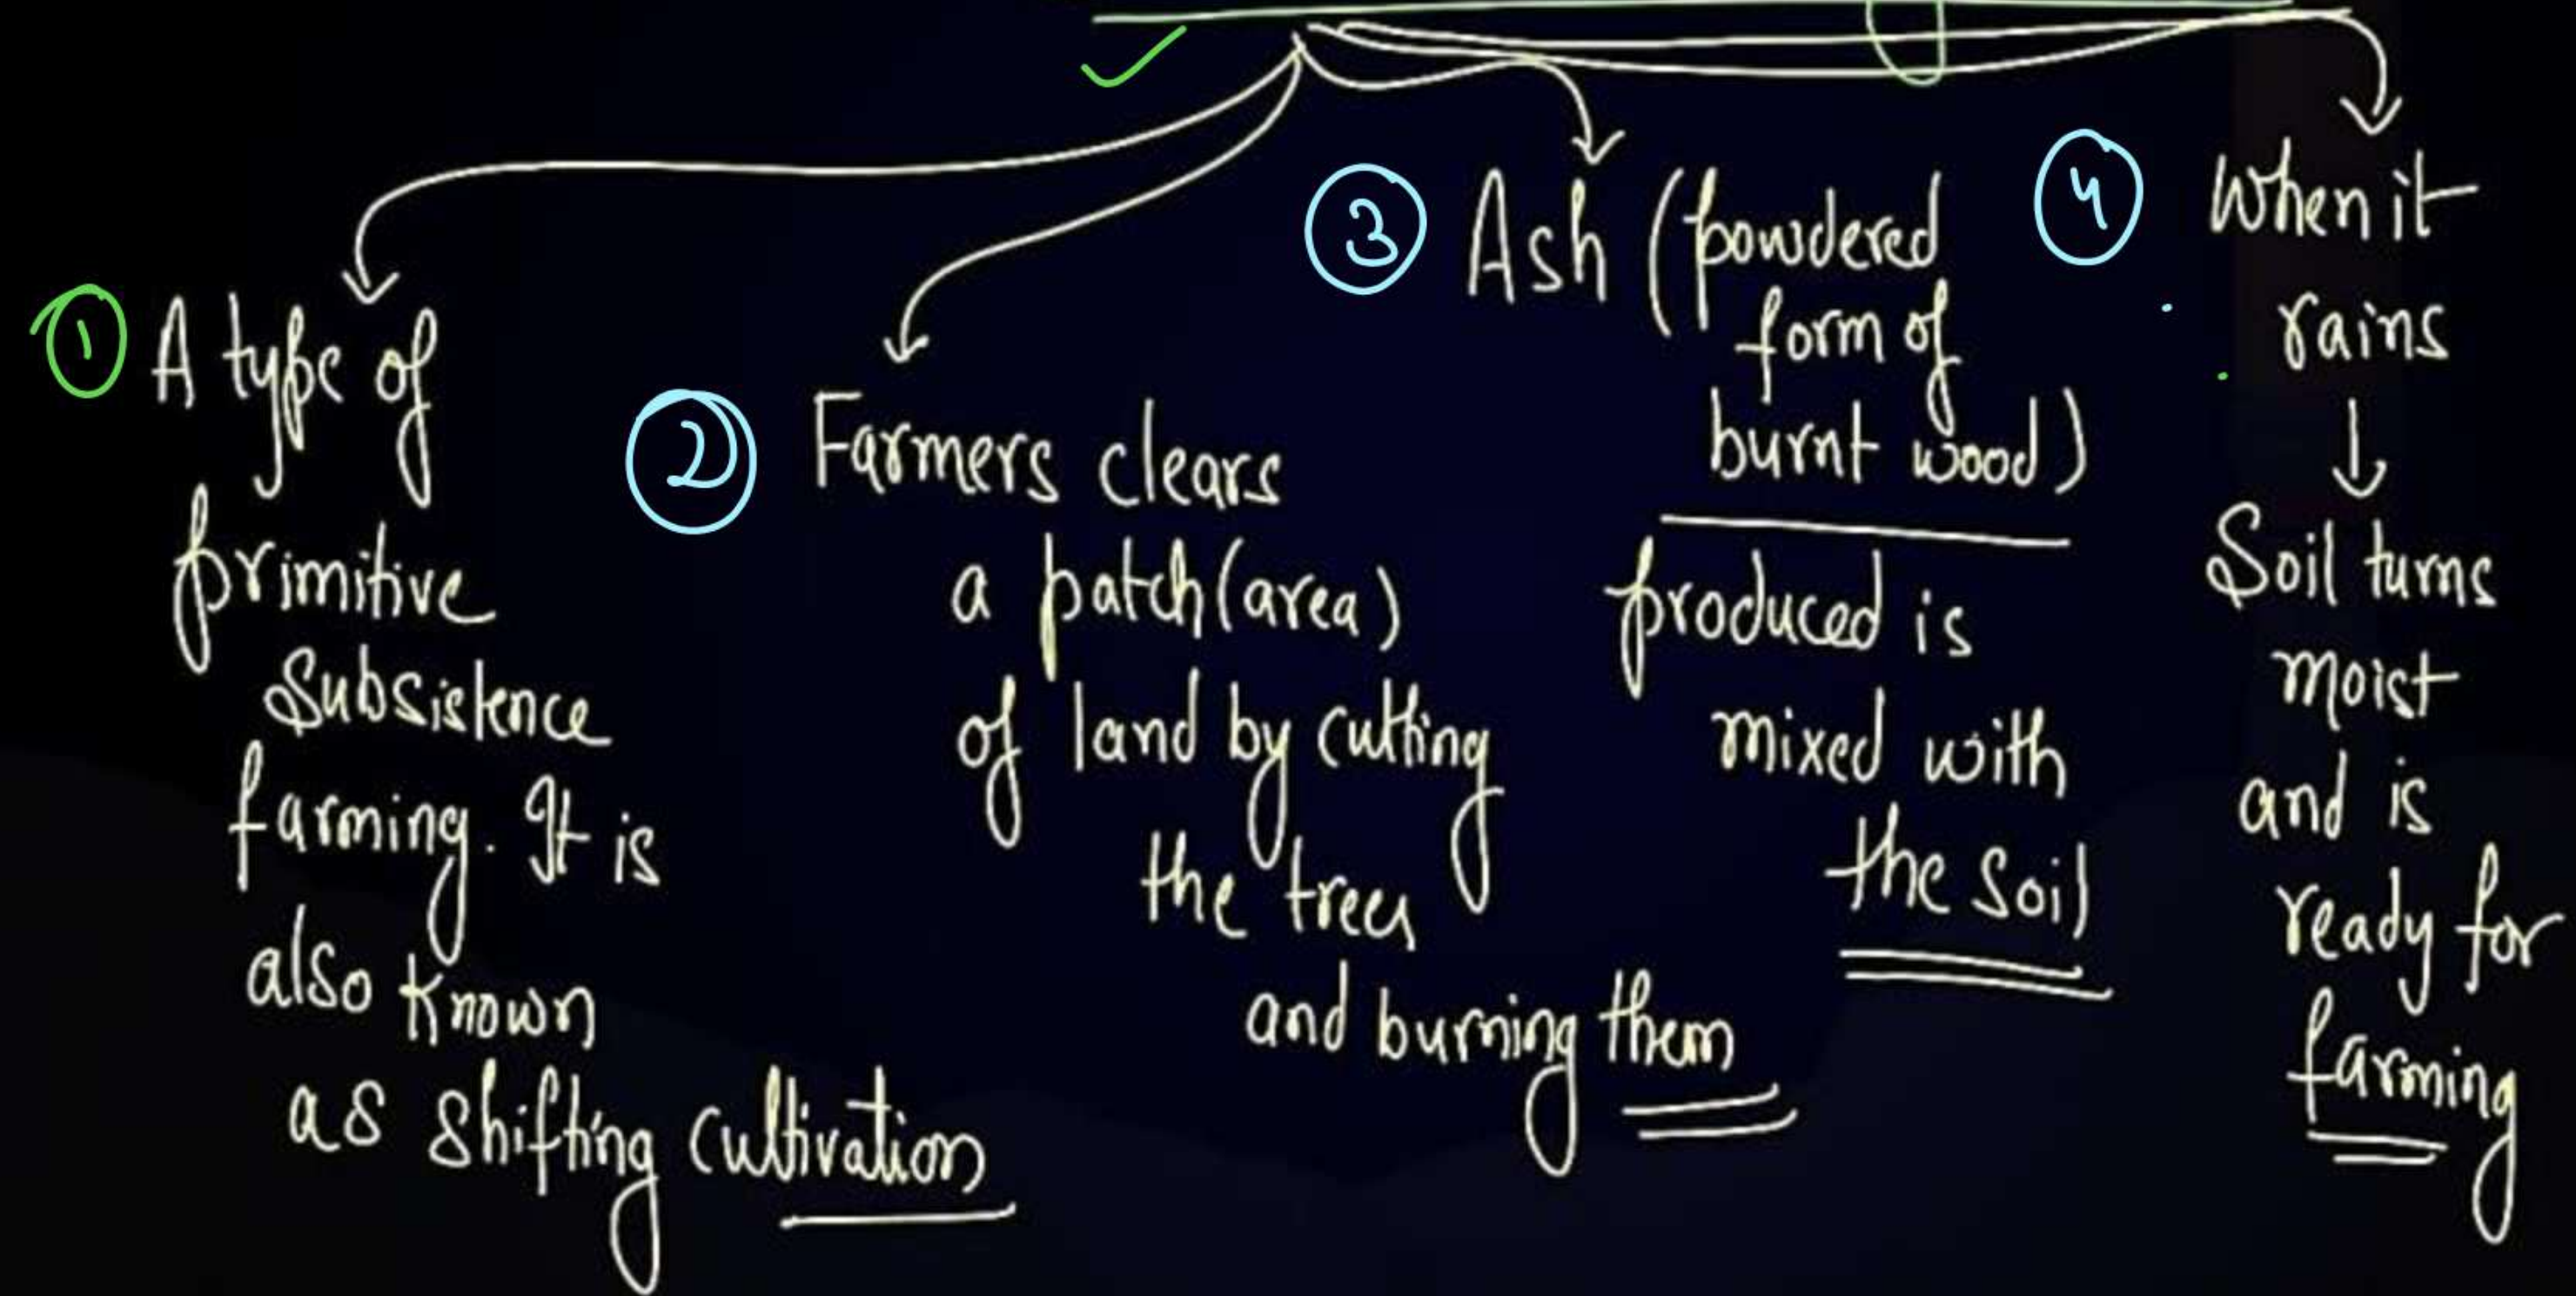 ①
A type of
primitive
Subsistence
farming. It is
also known
as shifting cultivation
②
Farmers clears
a patch (area)
of land by cutting
the trees
and burning them
③
Ash (powdered
form of
burnt wood)
produced is
mixed with
the soil
④
When it
rains
↓
Soil turns
moist
and is
ready for
farming